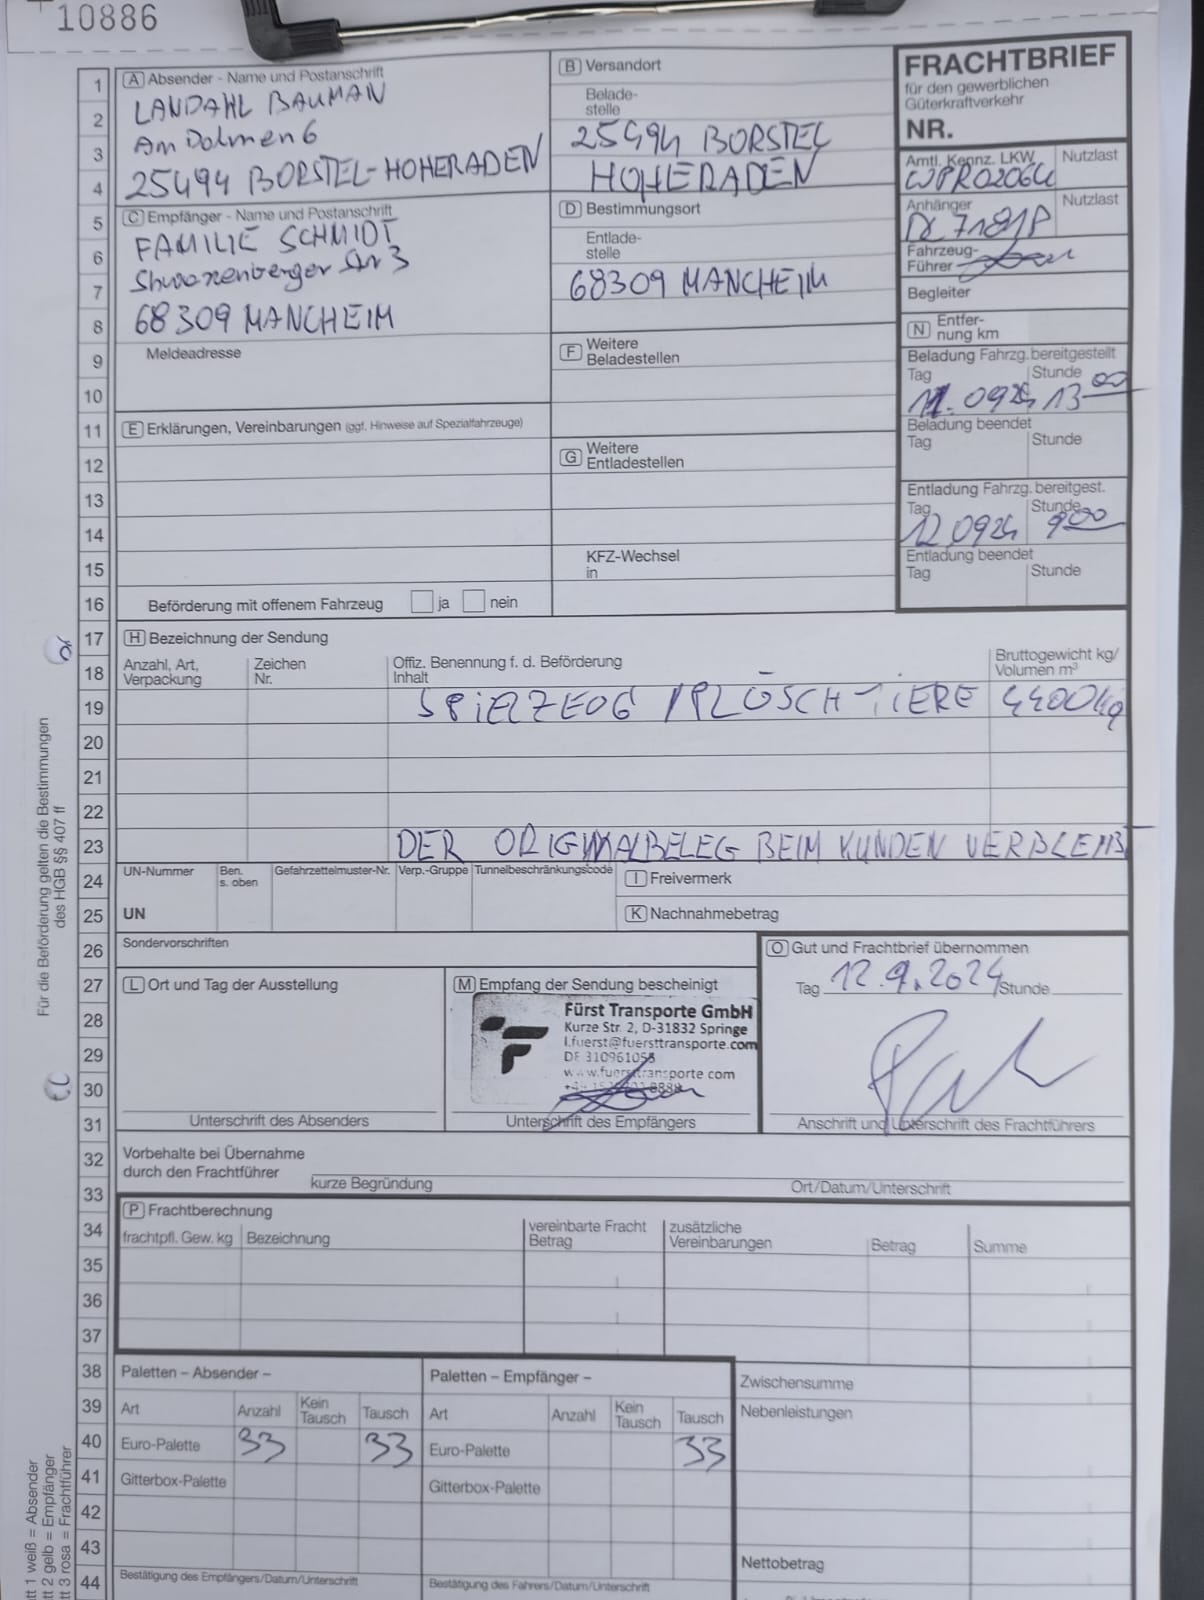 10886
A Absender - Name und Postanschrift
LANDAHL BAUMAN
Am Dolmen 6
25494 BORSTEL-HOHERADEN
B Versandort
Belade-
stelle
25494 BORSTEL
HOHERADEN
FRACHTBRIEF
für den gewerblichen
Güterkraftverkehr
NR.
Amtl. Kennz. LKW
Nutzlast
WPR0206U
Anhänger
Nutzlast
Fahrzeug-
Führer
Begleiter
C Empfänger - Name und Postanschrift
FAMILIE SCHMIDT
68309 MANCHEIM
Meldeadresse
D Bestimmungsort
Entlade-
stelle
68309 MANCHEIM
F Weitere
Beladestellen
N Entfer-
nung km
Beladung Fahrzg. bereitgestellt
Tag Stunde
11.0924 13 00
Beladung beendet
Tag Stunde
Entladung Fahrzg. bereitgest.
Tag Stunde
12 0924 9 00
Entladung beendet
Tag Stunde
E Erklärungen, Vereinbarungen (ggf. Hinweise auf Spezialfahrzeuge)
G Weitere
Entladestellen
KFZ-Wechsel
in
Beförderung mit offenem Fahrzeug ja nein
H Bezeichnung der Sendung
Anzahl, Art,
Verpackung
Zeichen
Nr.
Offiz. Benennung f. d. Beförderung
Inhalt
Bruttogewicht kg/
Volumen m³
SPIELZEUG / PLÜSCHTIERE 4400kg
DER ORIGINALBELEG BEIM KUNDEN VERBLEIBT
UN-Nummer
Ben.
s. oben
Gefahrzettelmuster-Nr.
Verp.-Gruppe
Tunnelbeschränkungscode
I Freivermerk
UN
K Nachnahmebetrag
Sondervorschriften
O Gut und Frachtbrief übernommen
Tag 12.9.2024 Stunde
Anschrift und Unterschrift des Frachtführers
L Ort und Tag der Ausstellung
Unterschrift des Absenders
M Empfang der Sendung bescheinigt
Fürst Transporte GmbH
Kurze Str. 2, D-31832 Springe
l.fuerst@fuersttransporte.com
DE 310961055
www.fuersttransporte.com
Unterschrift des Empfängers
Vorbehalte bei Übernahme
durch den Frachtführer
kurze Begründung
Ort/Datum/Unterschrift
P Frachtberechnung
frachtpfl. Gew. kg
Bezeichnung
vereinbarte Fracht
Betrag
zusätzliche
Vereinbarungen
Betrag
Summe
Paletten – Absender –
Art Anzahl Kein
Tausch Tausch
Euro-Palette 33 33
Gitterbox-Palette
Bestätigung des Empfängers/Datum/Unterschrift
Paletten – Empfänger –
Art Anzahl Kein
Tausch Tausch
Euro-Palette 33
Gitterbox-Palette
Bestätigung des Fahrers/Datum/Unterschrift
Zwischensumme
Nebenleistungen
Nettobetrag
1
2
3
4
5
6
7
8
9
10
11
12
13
14
15
16
17
18
19
20
21
22
23
24
25
26
27
28
29
30
31
32
33
34
35
36
37
38
39
40
41
42
43
44
Für die Beförderung gelten die Bestimmungen
des HGB §§ 407 ff
tt 1 weiß = Absender
tt 2 gelb = Empfänger
tt 3 rosa = Frachtführer